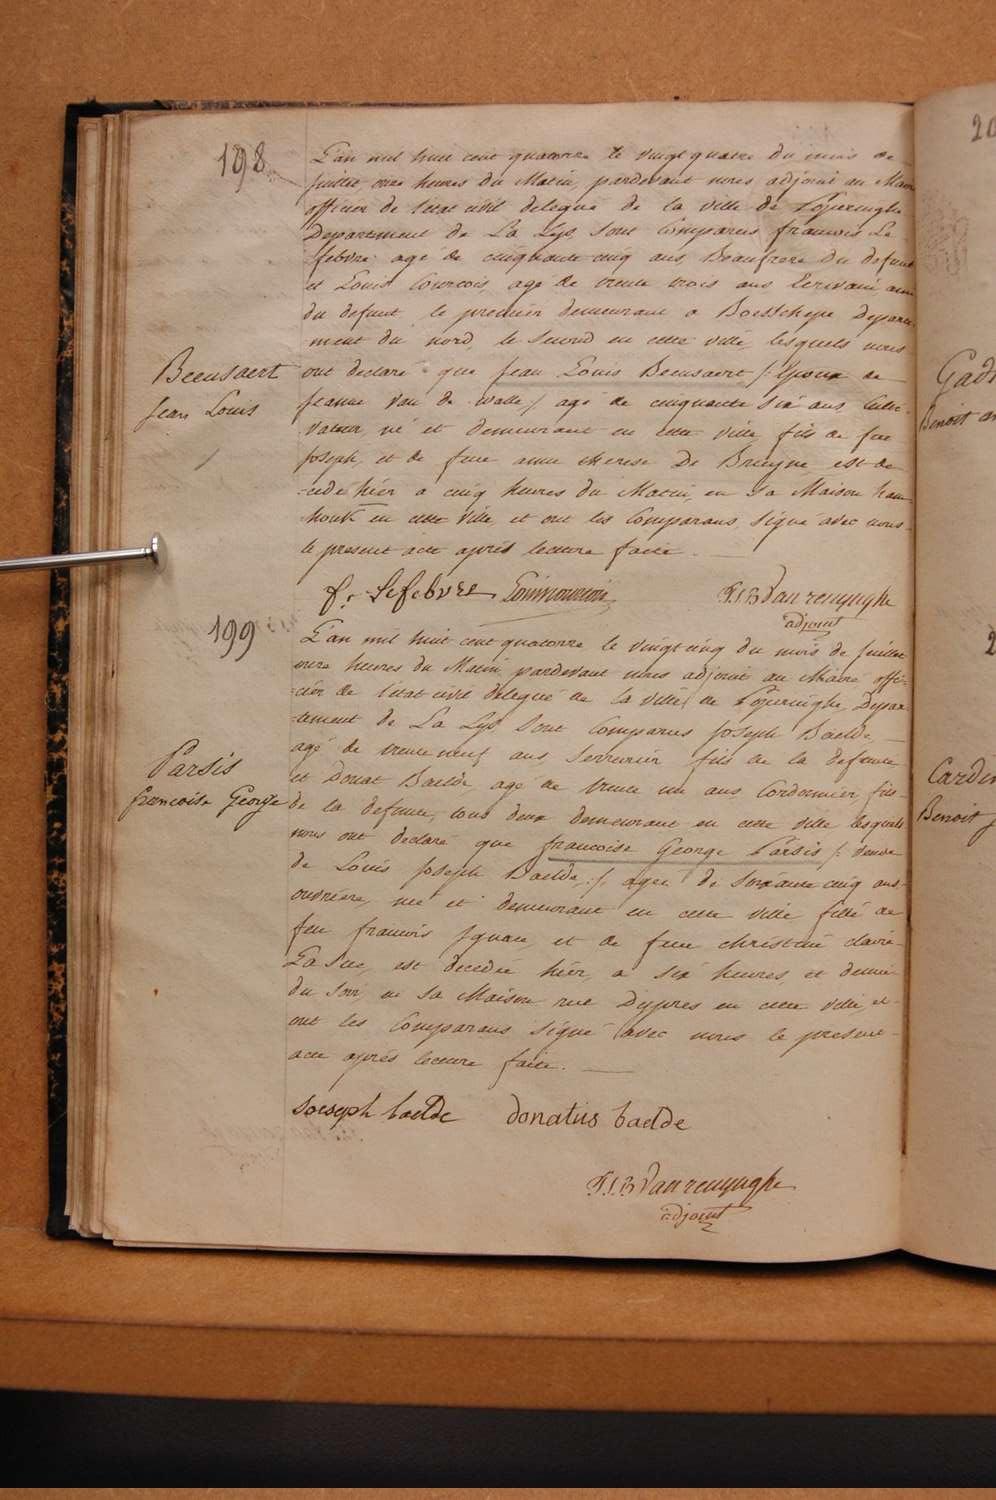 198
L'an mil huit cent quatorze le vingt quatre du mois de
Juillet, onze heures du Matin, pardevant nous adjoint au Maire
officier de l'état civil delegué de la ville de Poperinghe
Departement de La Lys, sont Comparus francois Le
febvre agé de cinquante cinq ans, Beaufrere du defunt
et Louis Courcois, agé de trente trois ans Ecrivain ami
du defunt, le premier demeurant a Boesschepe Departe-
ment du nord, le second en cette ville, lesquels nous
Beeusaert
Jean Louis
ont declaré que Jean Louis Beeusaert /: Epoux de
Jeanne Van de Walle / agé de cinquante six ans, Culti-
vateur, né et demeurant en cette ville, fils de feu
Joseph, et de feue anne therese De Bruyne est de
cedé hier a cinq heures du Matin, en sa Maison ham
houk en cette ville, et ont les Comparans, signé avec nous
le present acte après lecture faite.
f. Lefebvre P.J.B Vanrenynghe
adjoint
199
L'an mil huit cent quatorze le vingt cinq du mois de Juillet
onze heures du Matin pardevant nous adjoint au Maire offi-
cier de l'état civil delegué de la ville de Poperinghe, Depar-
tement de La Lys sont Comparus Joseph Baelde,
Parsis
francoise George
agé de trente neuf ans Serrurier fils de la defunte
et Donat Baelde, agé de trente un ans Cordonnier fils
de la defunte, tous deux demeurant en cette ville lesquels
nous ont declaré que francoise George Parsis /: veuve
de Louis Joseph Baelde, :/ agée de soixante cinq ans
ouvriere, née et demeurant en cette ville fille de
feu francois Ignace, et de feue christine claire
est decedée hier, a six heures et demie
du soir, en sa Maison rue D'ypres en cette ville, et
ont les Comparans signé avec nous le present
acte après lecture faite.
Joeseph baelde donatus baelde
P.J.B Vanrenynghe
adjoint
20
Benoit
Cardin
Benoit J